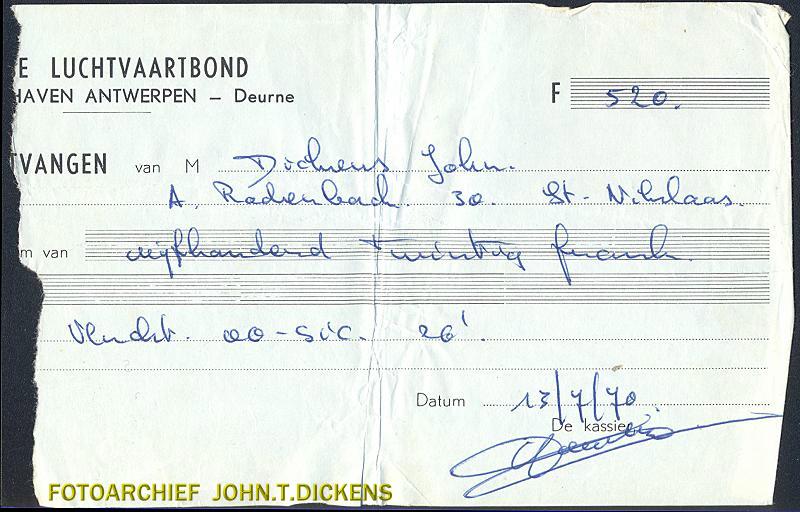 E LUCHTVAARTBOND
HAVEN ANTWERPEN – Deurne
F 520.
TVANGEN van M Dickens John.
A. Rodenbach. 30. St. Niklaas.
m van vijfhonderd twintig frank.
Vlucht. OO-SIC. 26'.
Datum 13/7/70
De kassier
FOTOARCHIEF JOHN.T.DICKENS